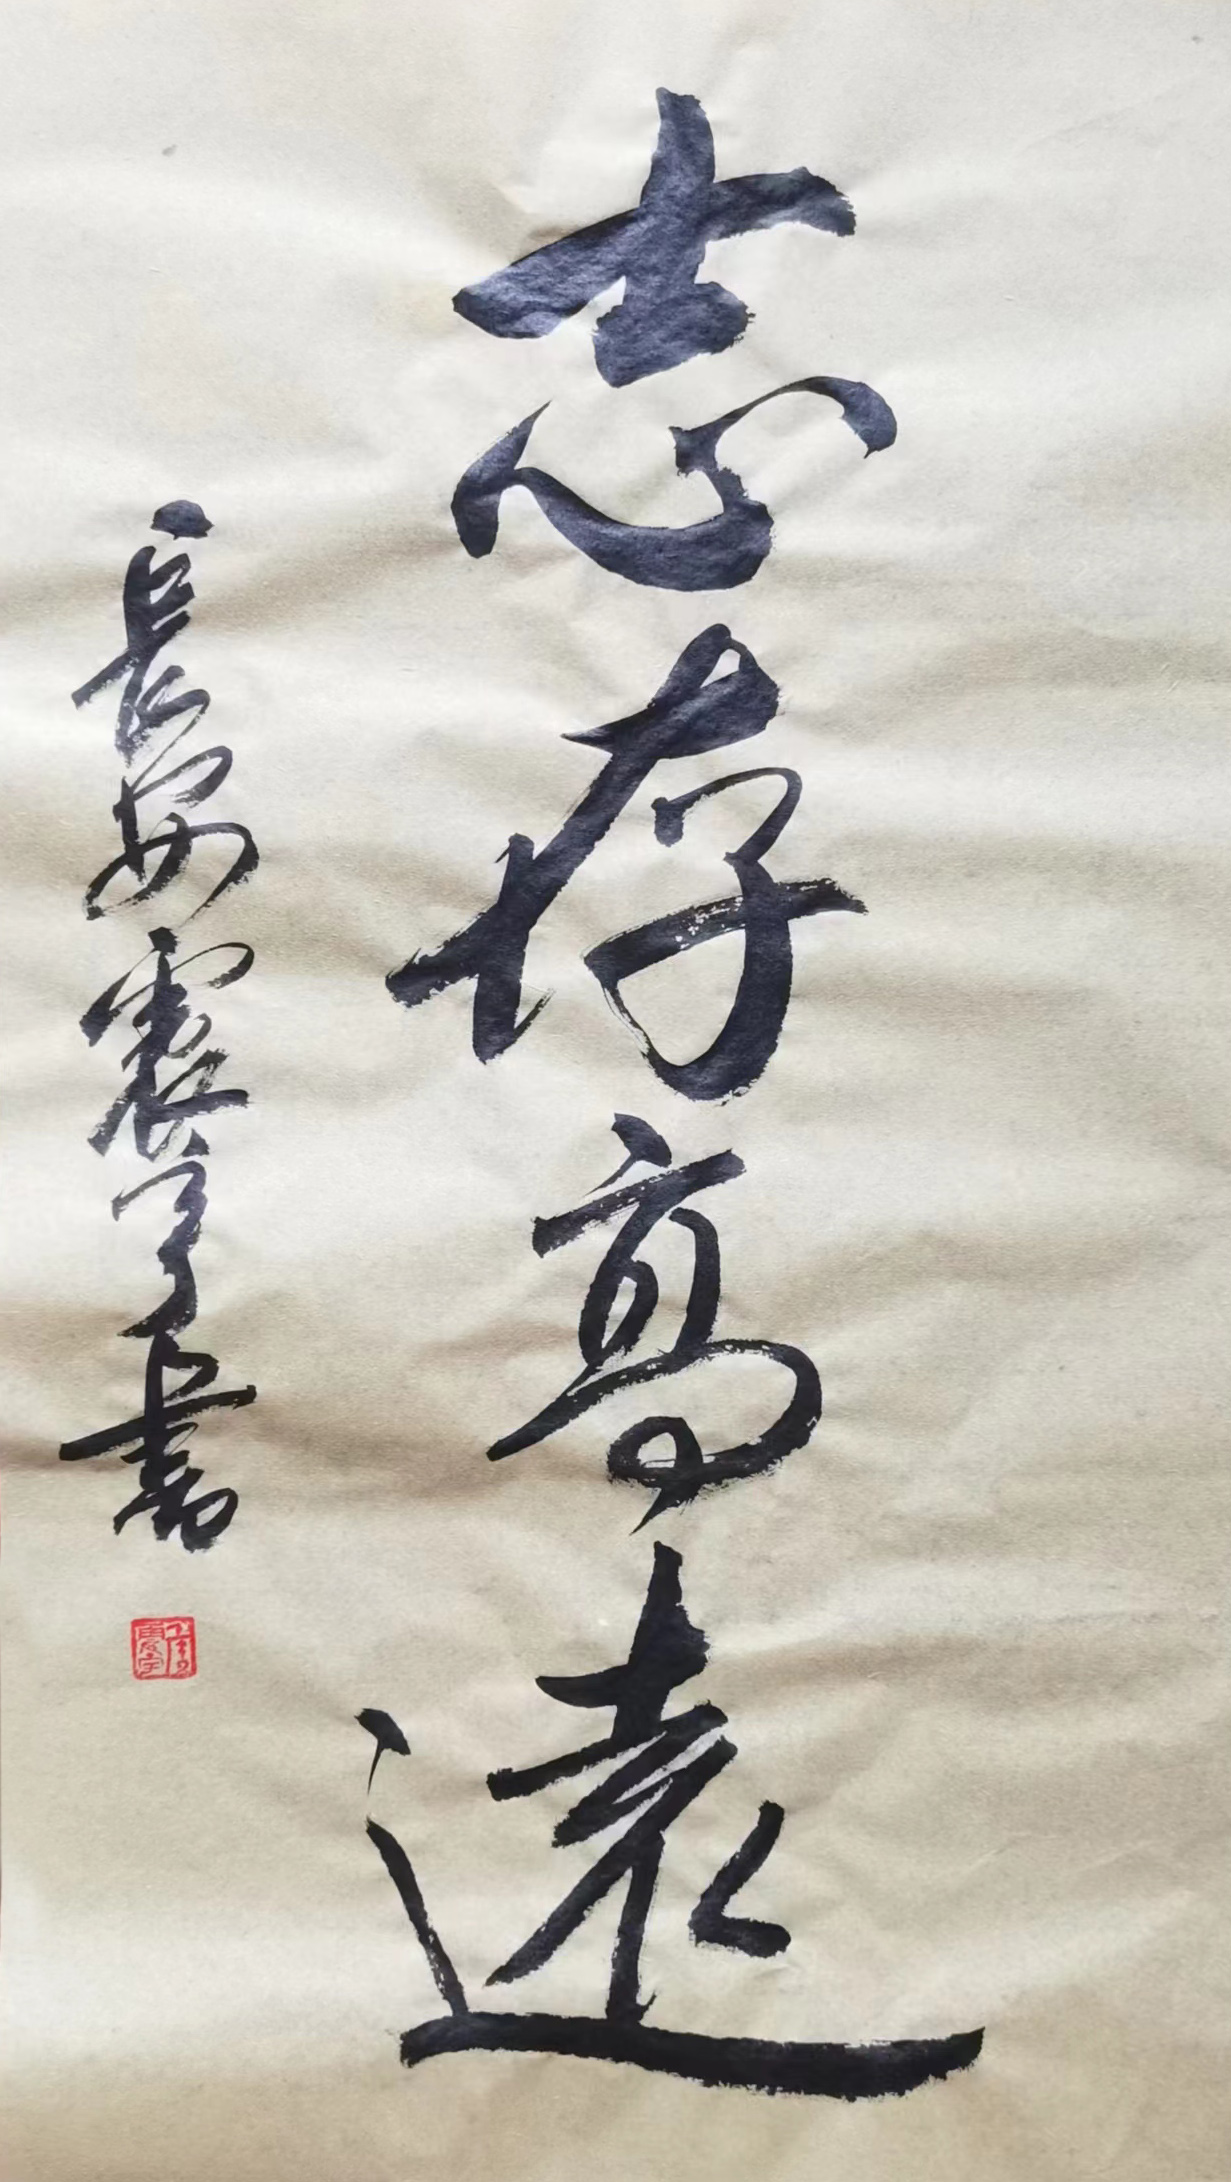 志存高遠
長安震宇書